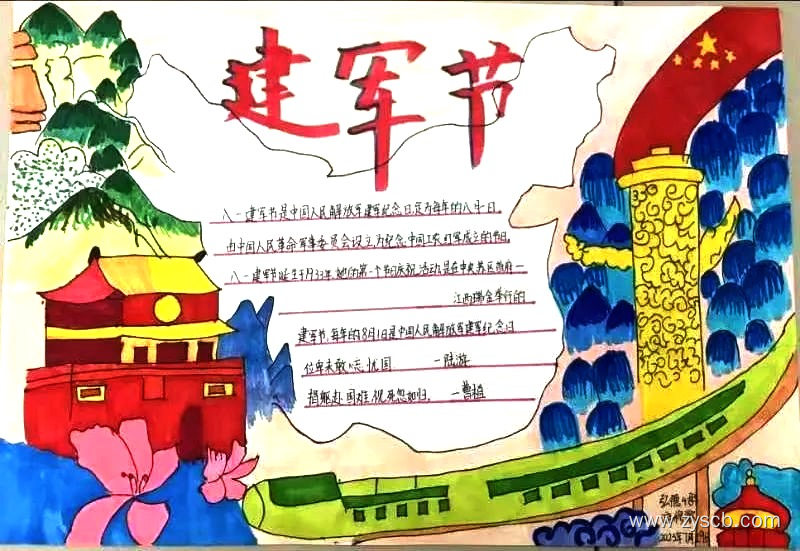 建军节
八一建军节是中国人民解放军建军纪念日,定为每年的八月一日,
由中国人民革命军事委员会设立,为纪念中国工农红军成立的节日。
八一建军节诞生于1933年,她的第一个节日庆祝活动是在中央苏区政府—
江西瑞金举行的
建军节,每年的8月1日是中国人民解放军建军纪念日
位卑未敢忘忧国 —陆游
捐躯赴国难,视死忽如归。 —曹植
弘德
www.zyscb.com